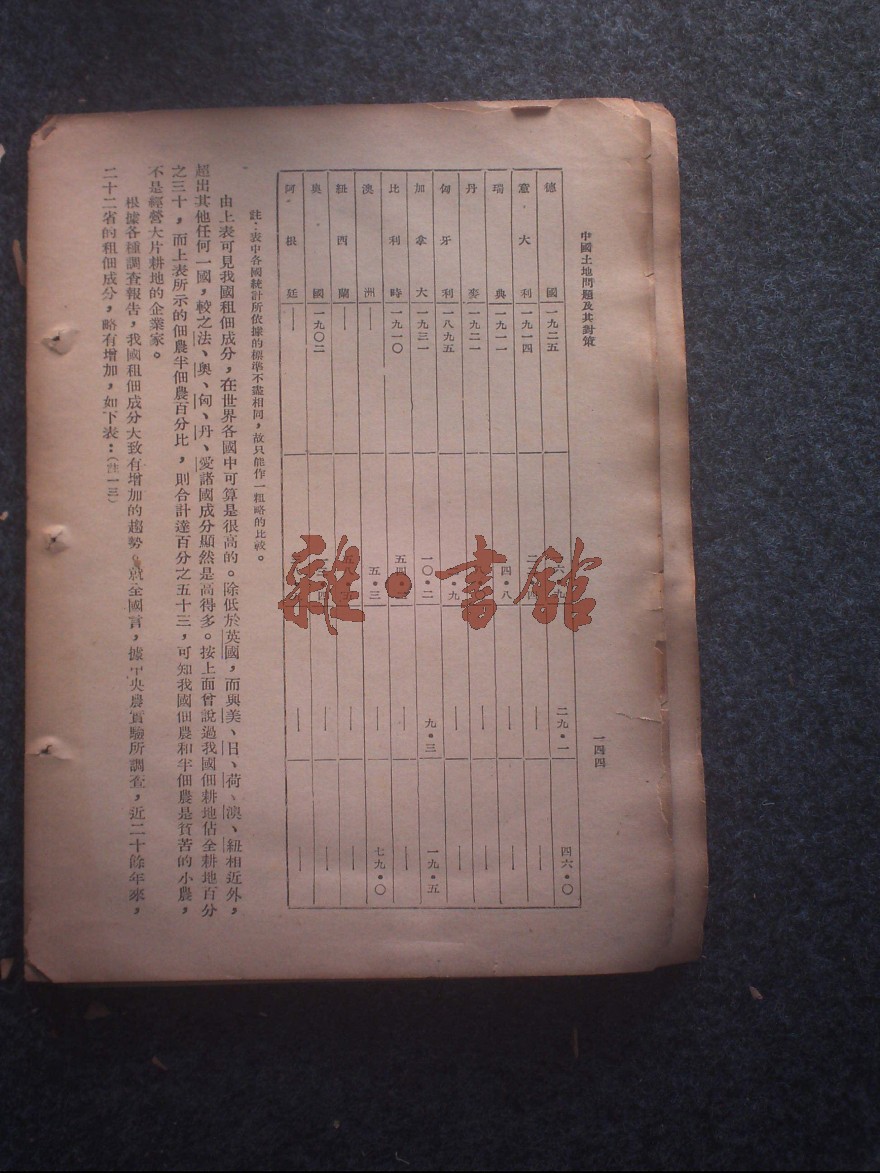 中國土地問題及其對策
一四四
德國 一九二五 二九·一 四六·〇
意大利 一九一四 —— ——
瑞典 一九一一 四·八 —— ——
丹麥 一九二一 —— ——
匈牙利 一八九五 —— ——
加拿大 一九三一 一〇·二 九·三 一九·五
比利時 一九一〇 —— ——
澳洲 —— 五·三 —— 七九·〇
紐西蘭 —— —— ——
奧國 一九〇二 —— ——
阿根廷 —— —— ——
註：表中各國統計所依據的標準不盡相同，故只能作一粗略的比較。
由上表可見我國租佃成分，在世界各國中可算是很高的。除低於英國，而與美、日、荷、澳、紐相近外，
超出其他任何一國，較之法、奧、匈、丹、愛諸國成分顯然是高得多。按上面曾說過我國佃耕地佔全耕地百分
之三十，而上表所示的佃農半佃農百分比，則合計達百分之五十三，可知我國佃農和半佃農是貧苦的小農，
不是經營大片耕地的企業家。
根據各種調查報告，我國租佃成分大致有增加的趨勢。就全國言，據中央農業實驗所調查，近二十餘年來，
二十二省的租佃成分，略有增加，如下表：（註一三）
雜·書館